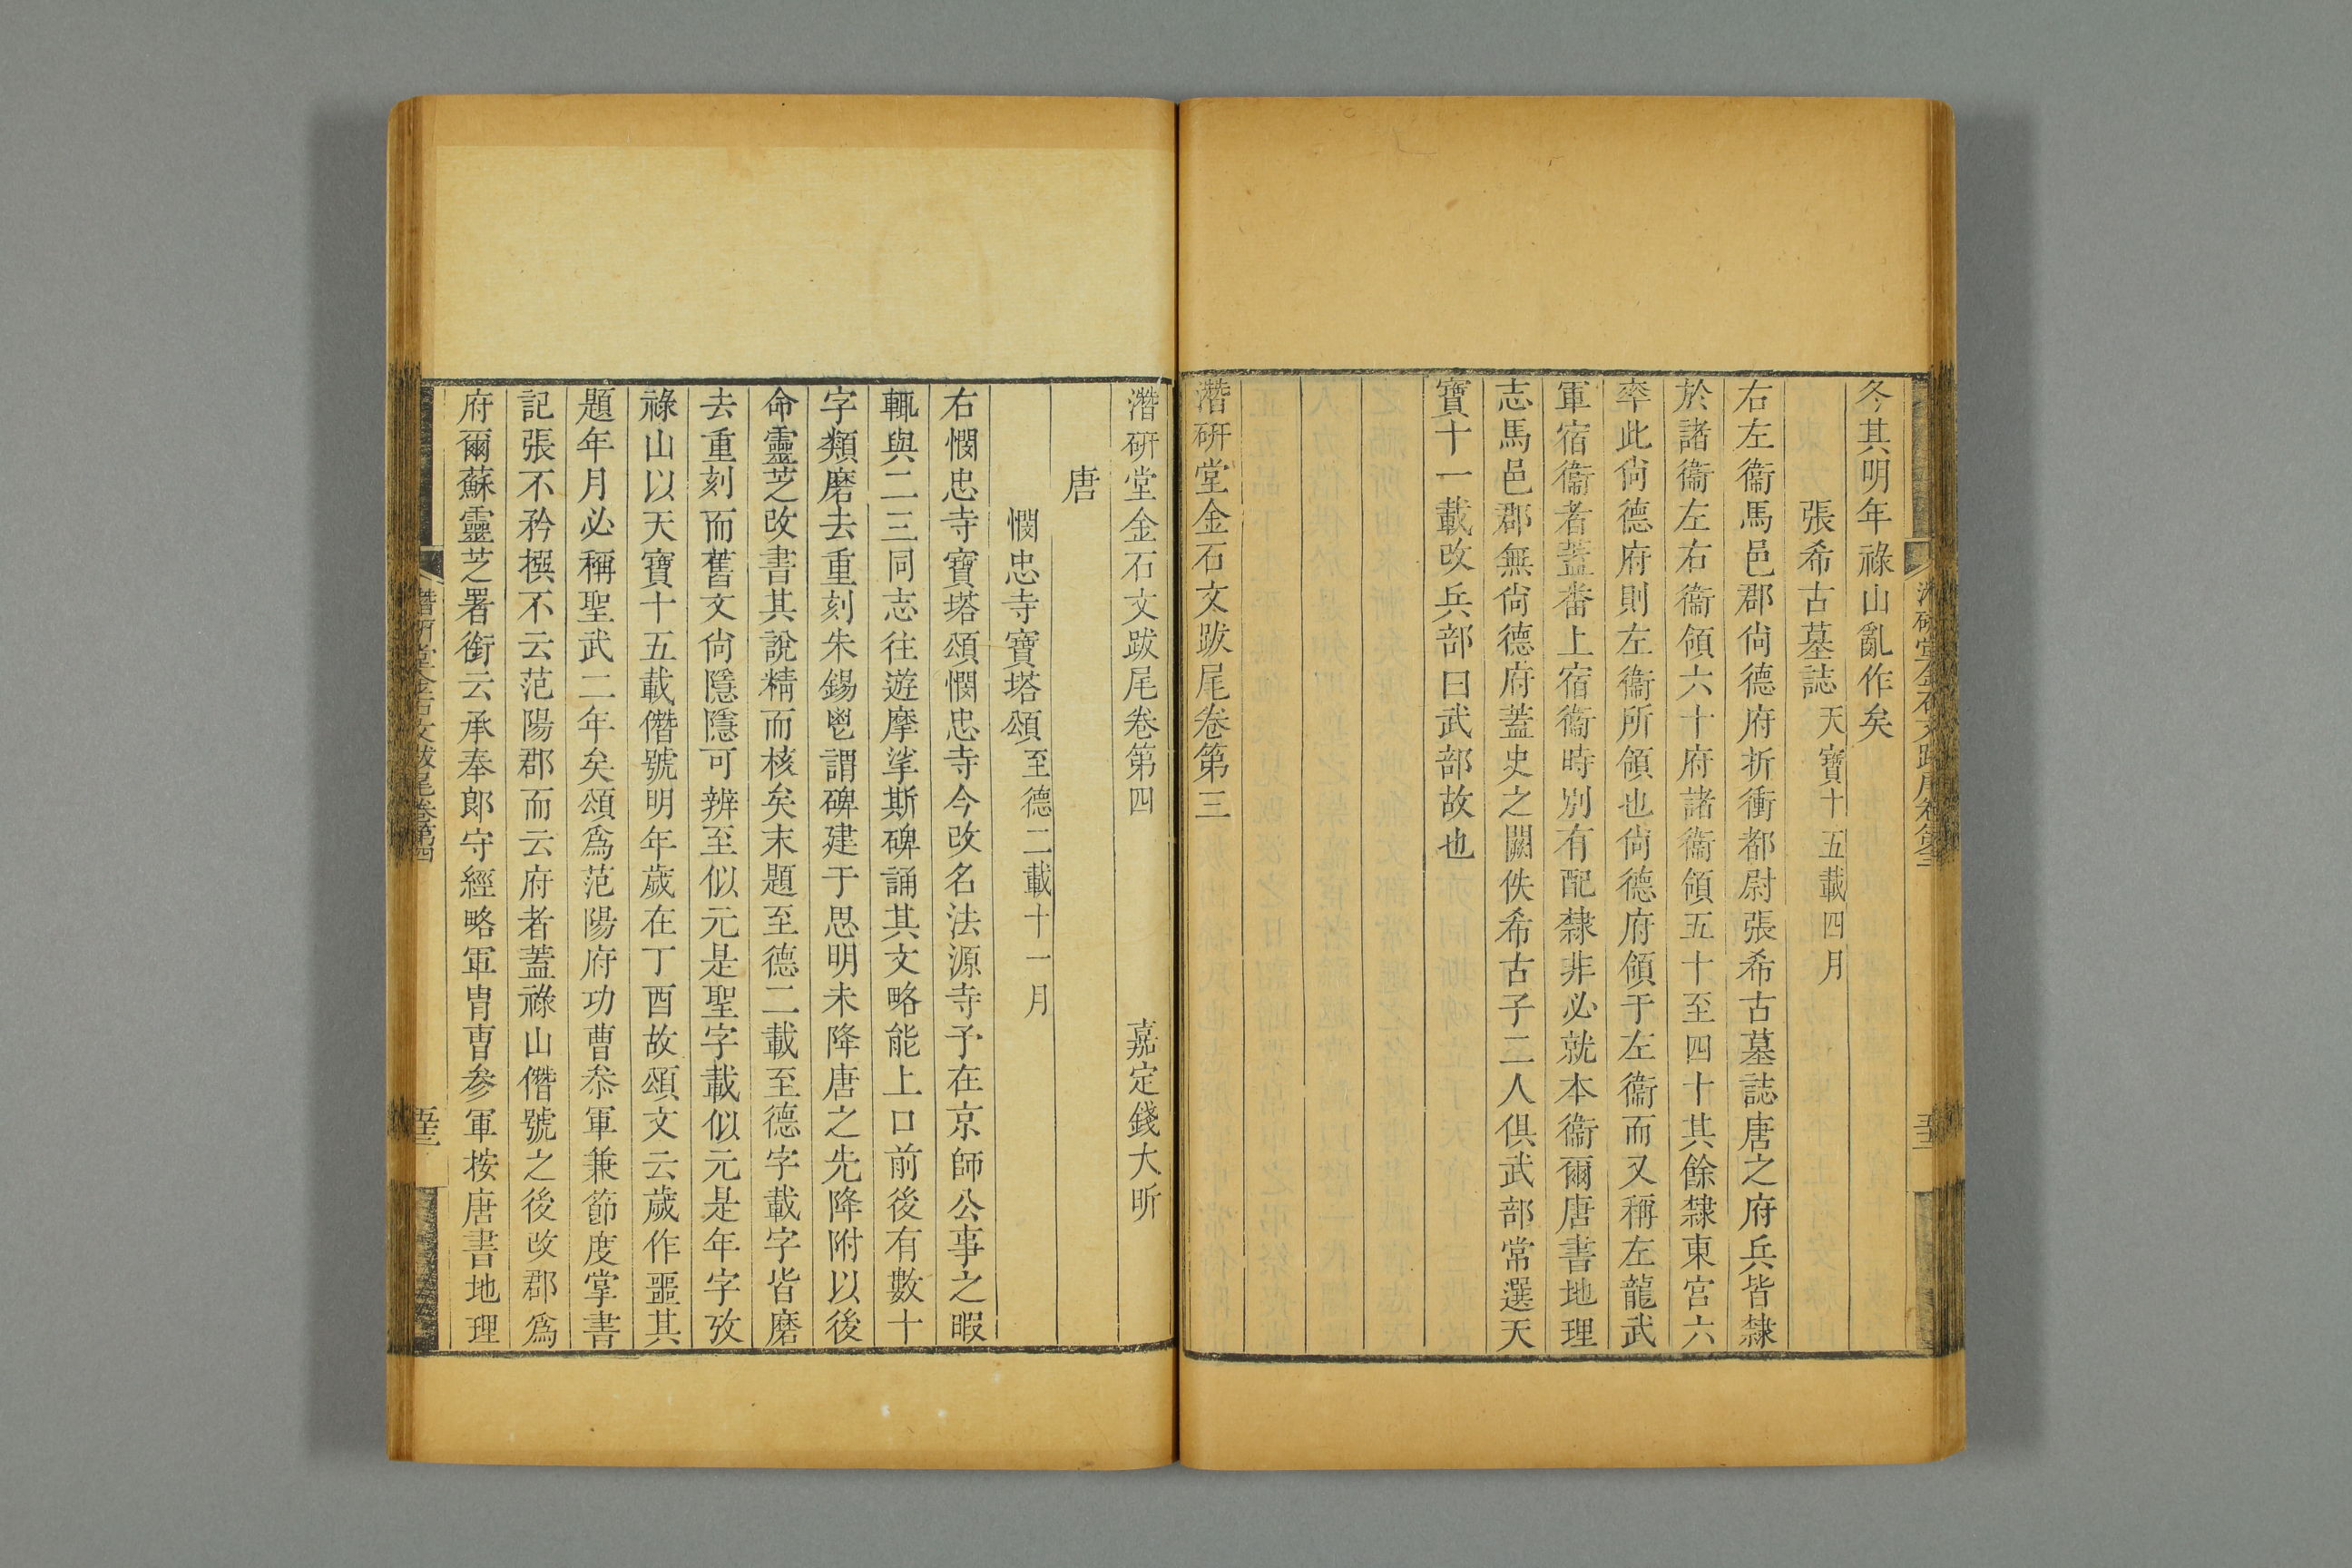 冬其明年祿山亂作矣
張希古墓誌天寶十五載四月
右左衞馬邑郡尙德府折衝都尉張希古墓誌唐之府兵皆隸
於諸衞左右衞領六十府諸衞領五十至四十其餘隸東宮六
率此尙德府則左衞所領也尙德府領于左衞而又稱左龍武
軍宿衞者蓋番上宿衞時別有配隸非必就本衞爾唐書地理
志馬邑郡無尙德府蓋史之闕佚希古子二人俱武部常選天
寶十一載改兵部曰武部故也
潛硏堂金石文跋尾卷第三
潛硏堂金石文跋尾卷第四 嘉定錢大昕
唐
憫忠寺寶塔頌至德二載十一月
右憫忠寺寶塔頌憫忠寺今改名法源寺予在京師公事之暇
輒與二三同志往遊摩挲斯碑誦其文略能上口前後有數十
字類磨去重刻朱錫鬯謂碑建于思明未降唐之先降附以後
命靈芝改書其說精而核矣末題至德二載至德字載字皆磨
去重刻而舊文尙隱隱可辨至似元是聖字載似元是年字攷
祿山以天寶十五載僭號明年歲在丁酉故頌文云歲作噩其
題年月必稱聖武二年矣頌爲范陽府功曹叅軍兼節度掌書
記張不矜撰不云范陽郡而云府者蓋祿山僭號之後改郡爲
府爾蘇靈芝署銜云承奉郎守經略軍胄曹參軍按唐書地理
潛硏堂金石文跋尾卷第四